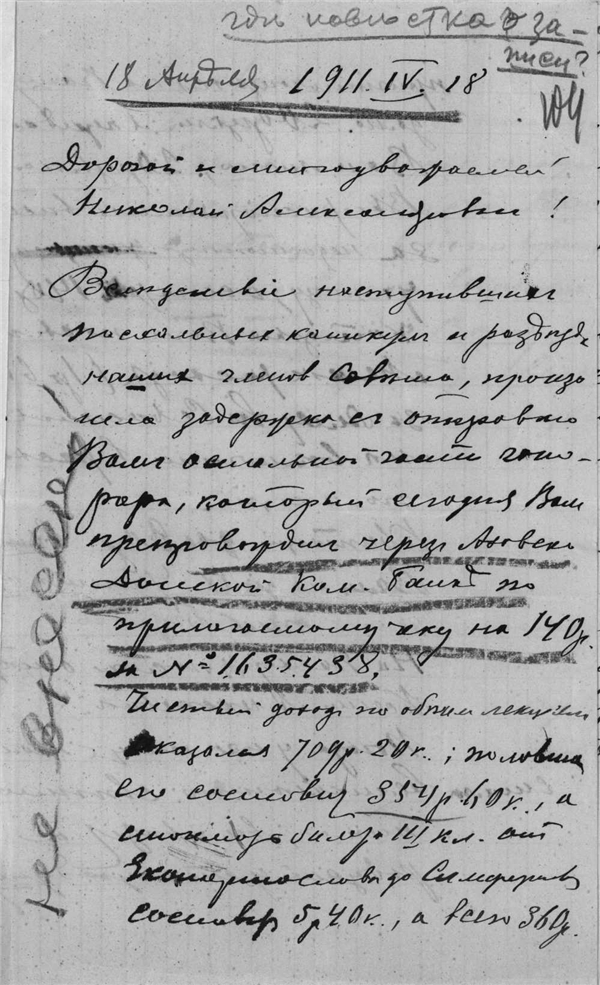 где повѣстка о за-
писи?
18 Апрѣля 1911.IV.18
104
Дорогой и многоуважаемый
Николай Александрович!
Вслѣдствіе наступивших
пасхальных каникул и разъѣзда
наших членов Совѣта, произо
шла задержка с отправкою
Вам остальной части гоно-
рара, который сегодня Вам
препроводил через Азовско
Донской Ком. Банк по
прилагаемому чеку на 140р.
за № 1.635.438.
Чистый доход по обѣим лекціям
оказался 709р. 20к.; половина
его составит 354р. 60к., а
стоимость билета III кл. от
Екатеринослава до Симферополя
составит 5р40к., а всего 360р.
не внесено!